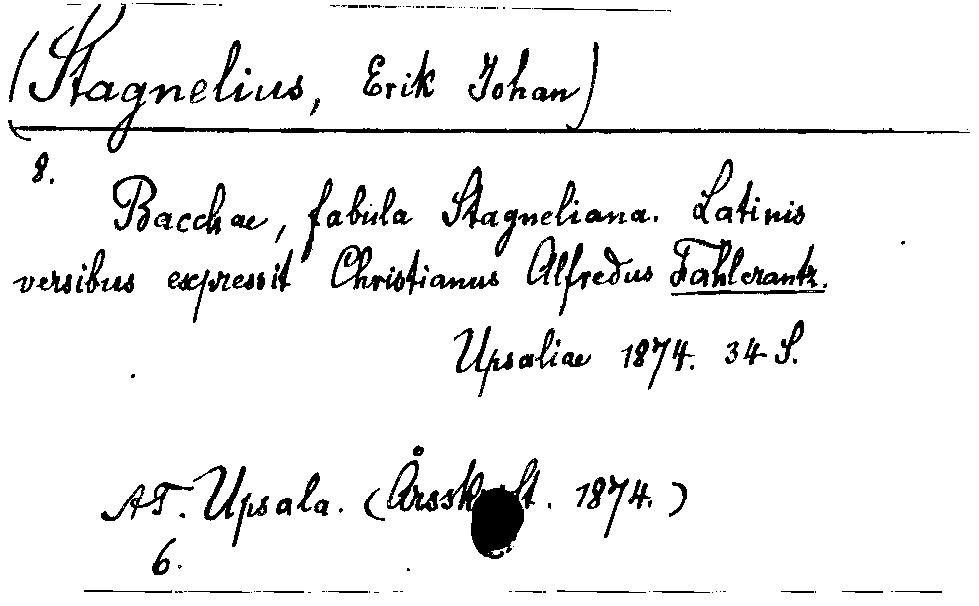 (Stagnelius, Erik Johan)
8.
Bacchae, fabula Stagneliana. Latinis
versibus expressit Christianus Alfredus Fahlcrantz.
Upsaliae 1874. 34 S.
AT. Upsala. (Årsskrift. 1874.)
6.